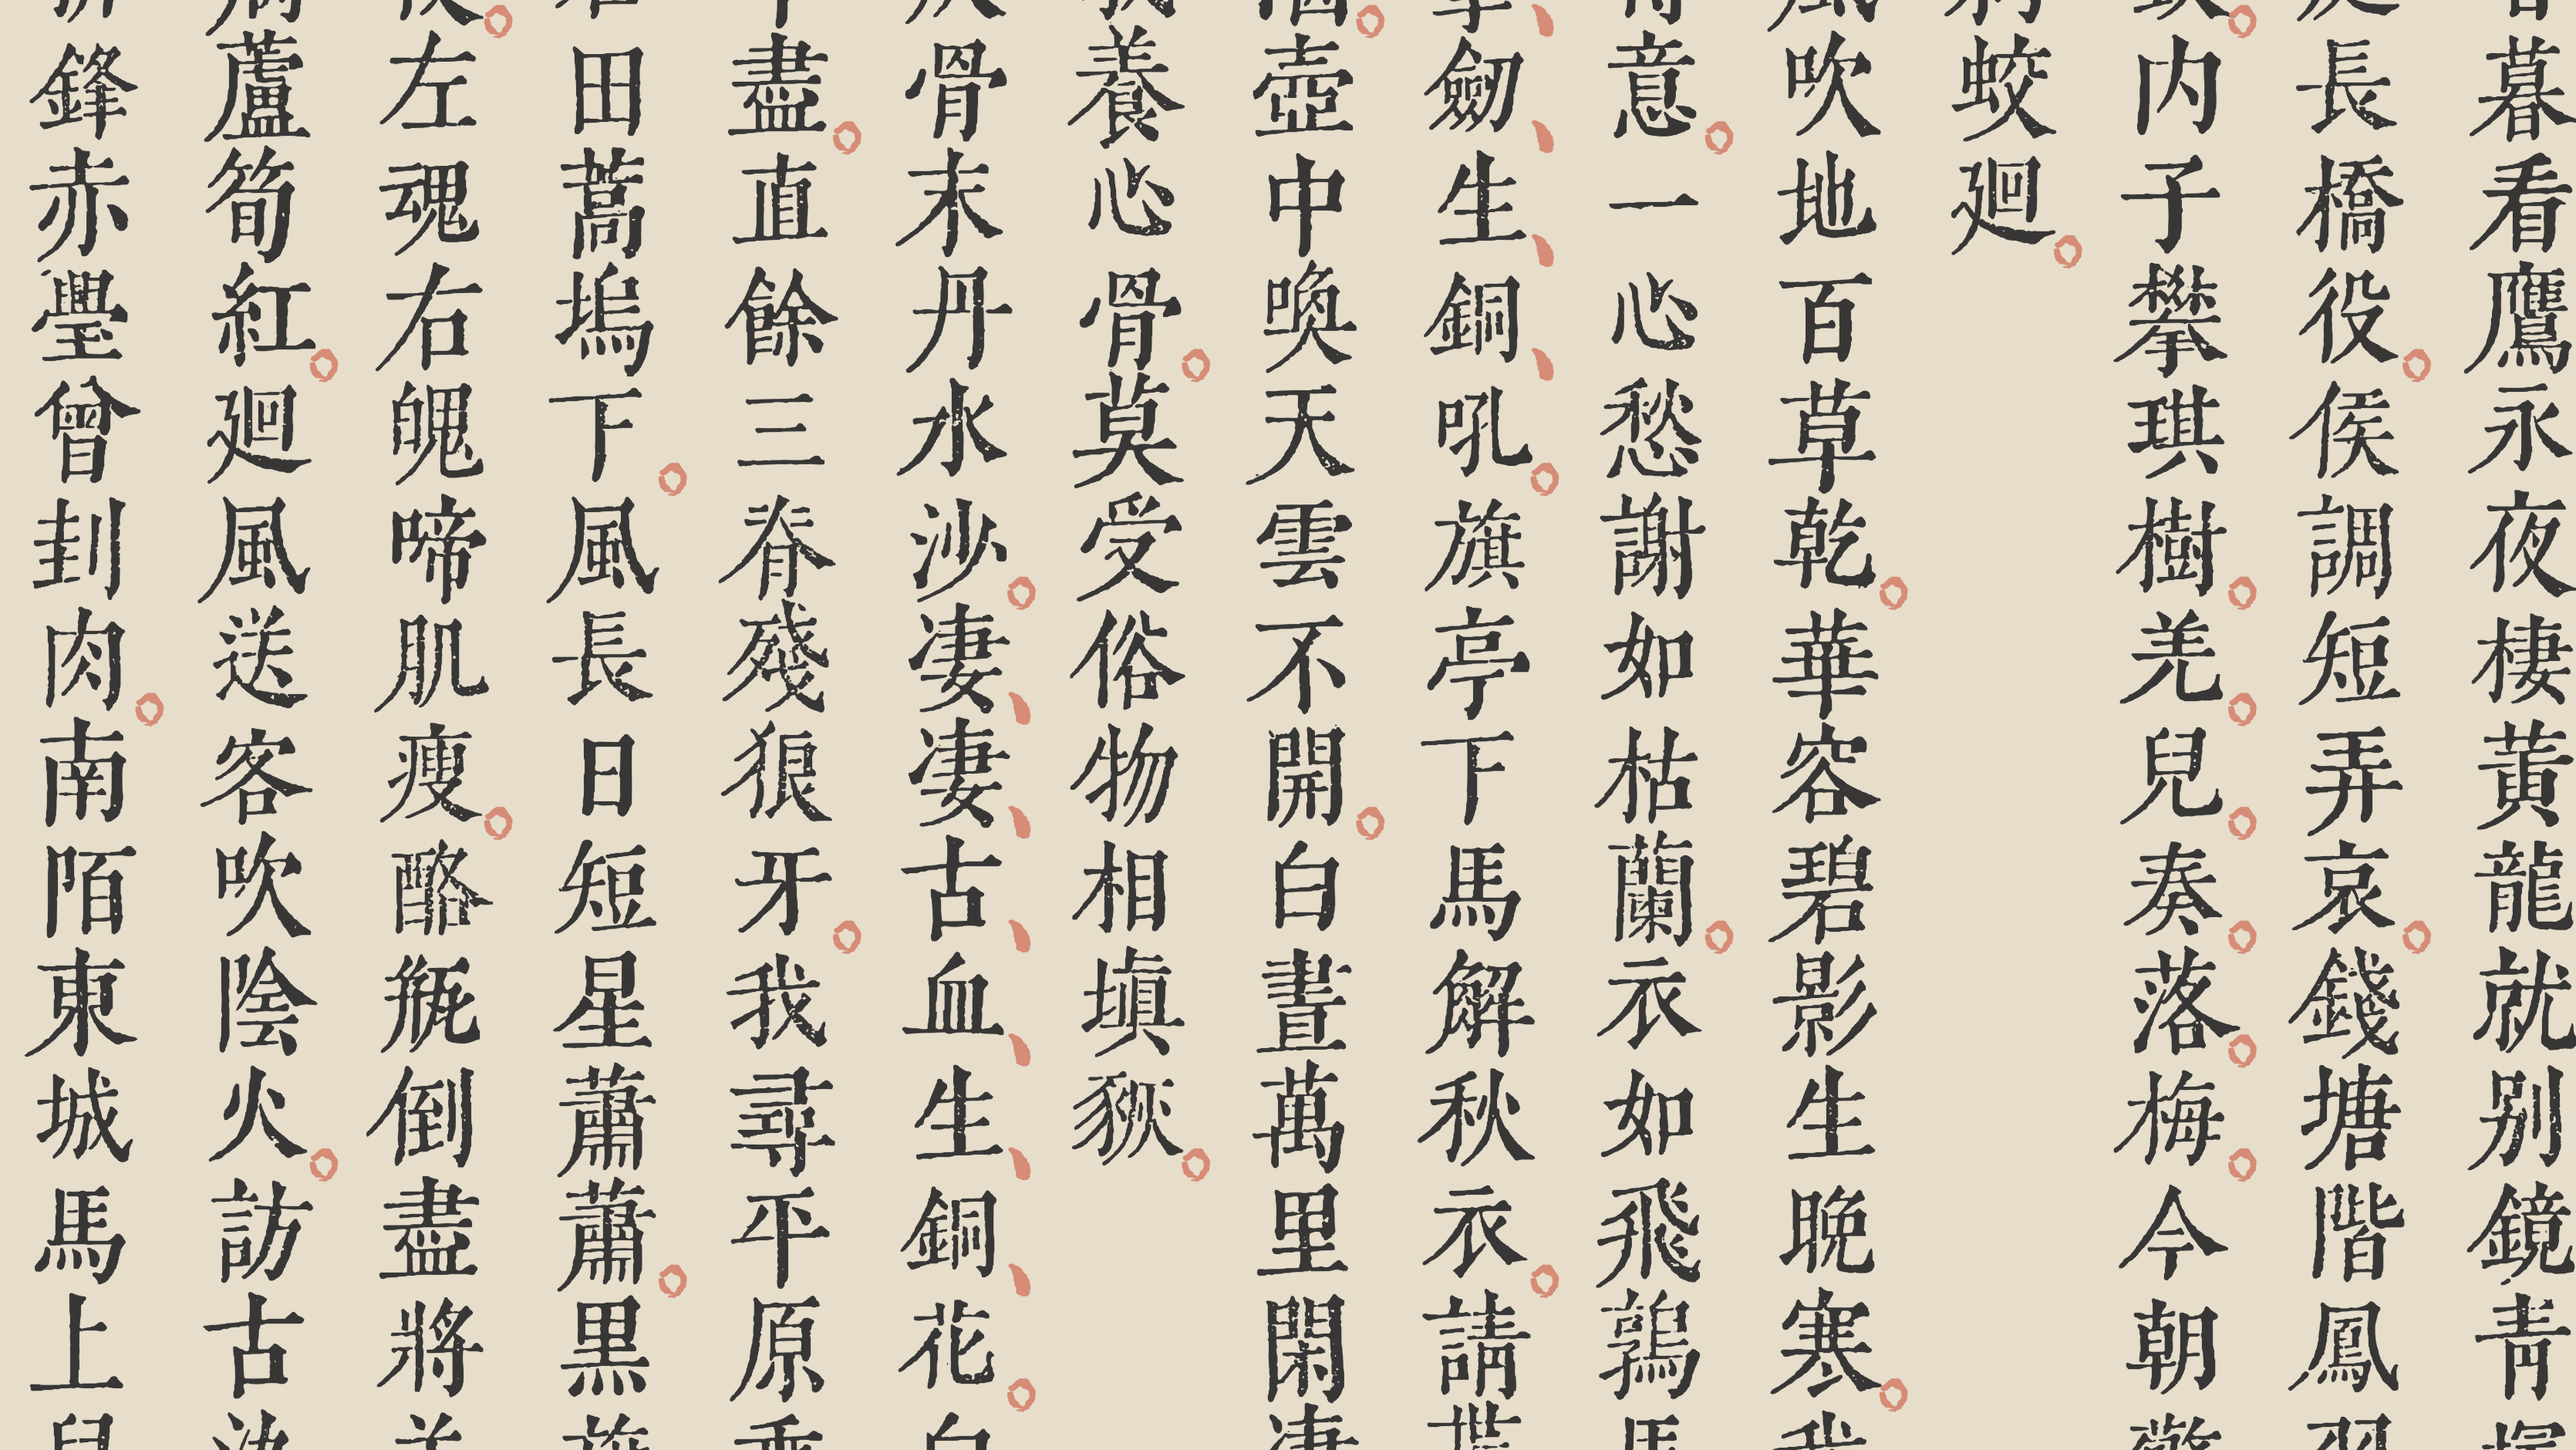 暮看鷹永夜棲黃龍就别鏡青
長橋役侯調短弄哀錢塘階鳳
内子攀琪樹羌兒奏落梅今朝
蛟廻
吹地百草乾華容碧影生晚寒我
意一心愁謝如枯蘭衣如飛鶉馬
劒生銅吼旗亭下馬解秋衣請貰
壺中喚天雲不開白晝萬里閑凄
養心骨莫受俗物相填豗
骨末丹水沙凄凄古血生銅花白
盡直餘三脊殘狼牙我尋平原乘
田蒿塢下風長日短星蕭蕭黑旗
左魂右魄啼肌瘦酪瓶倒盡將羊
蘆筍紅廻風送客吹陰火訪古
鋒赤璺曾刲肉南陌東城馬上兒